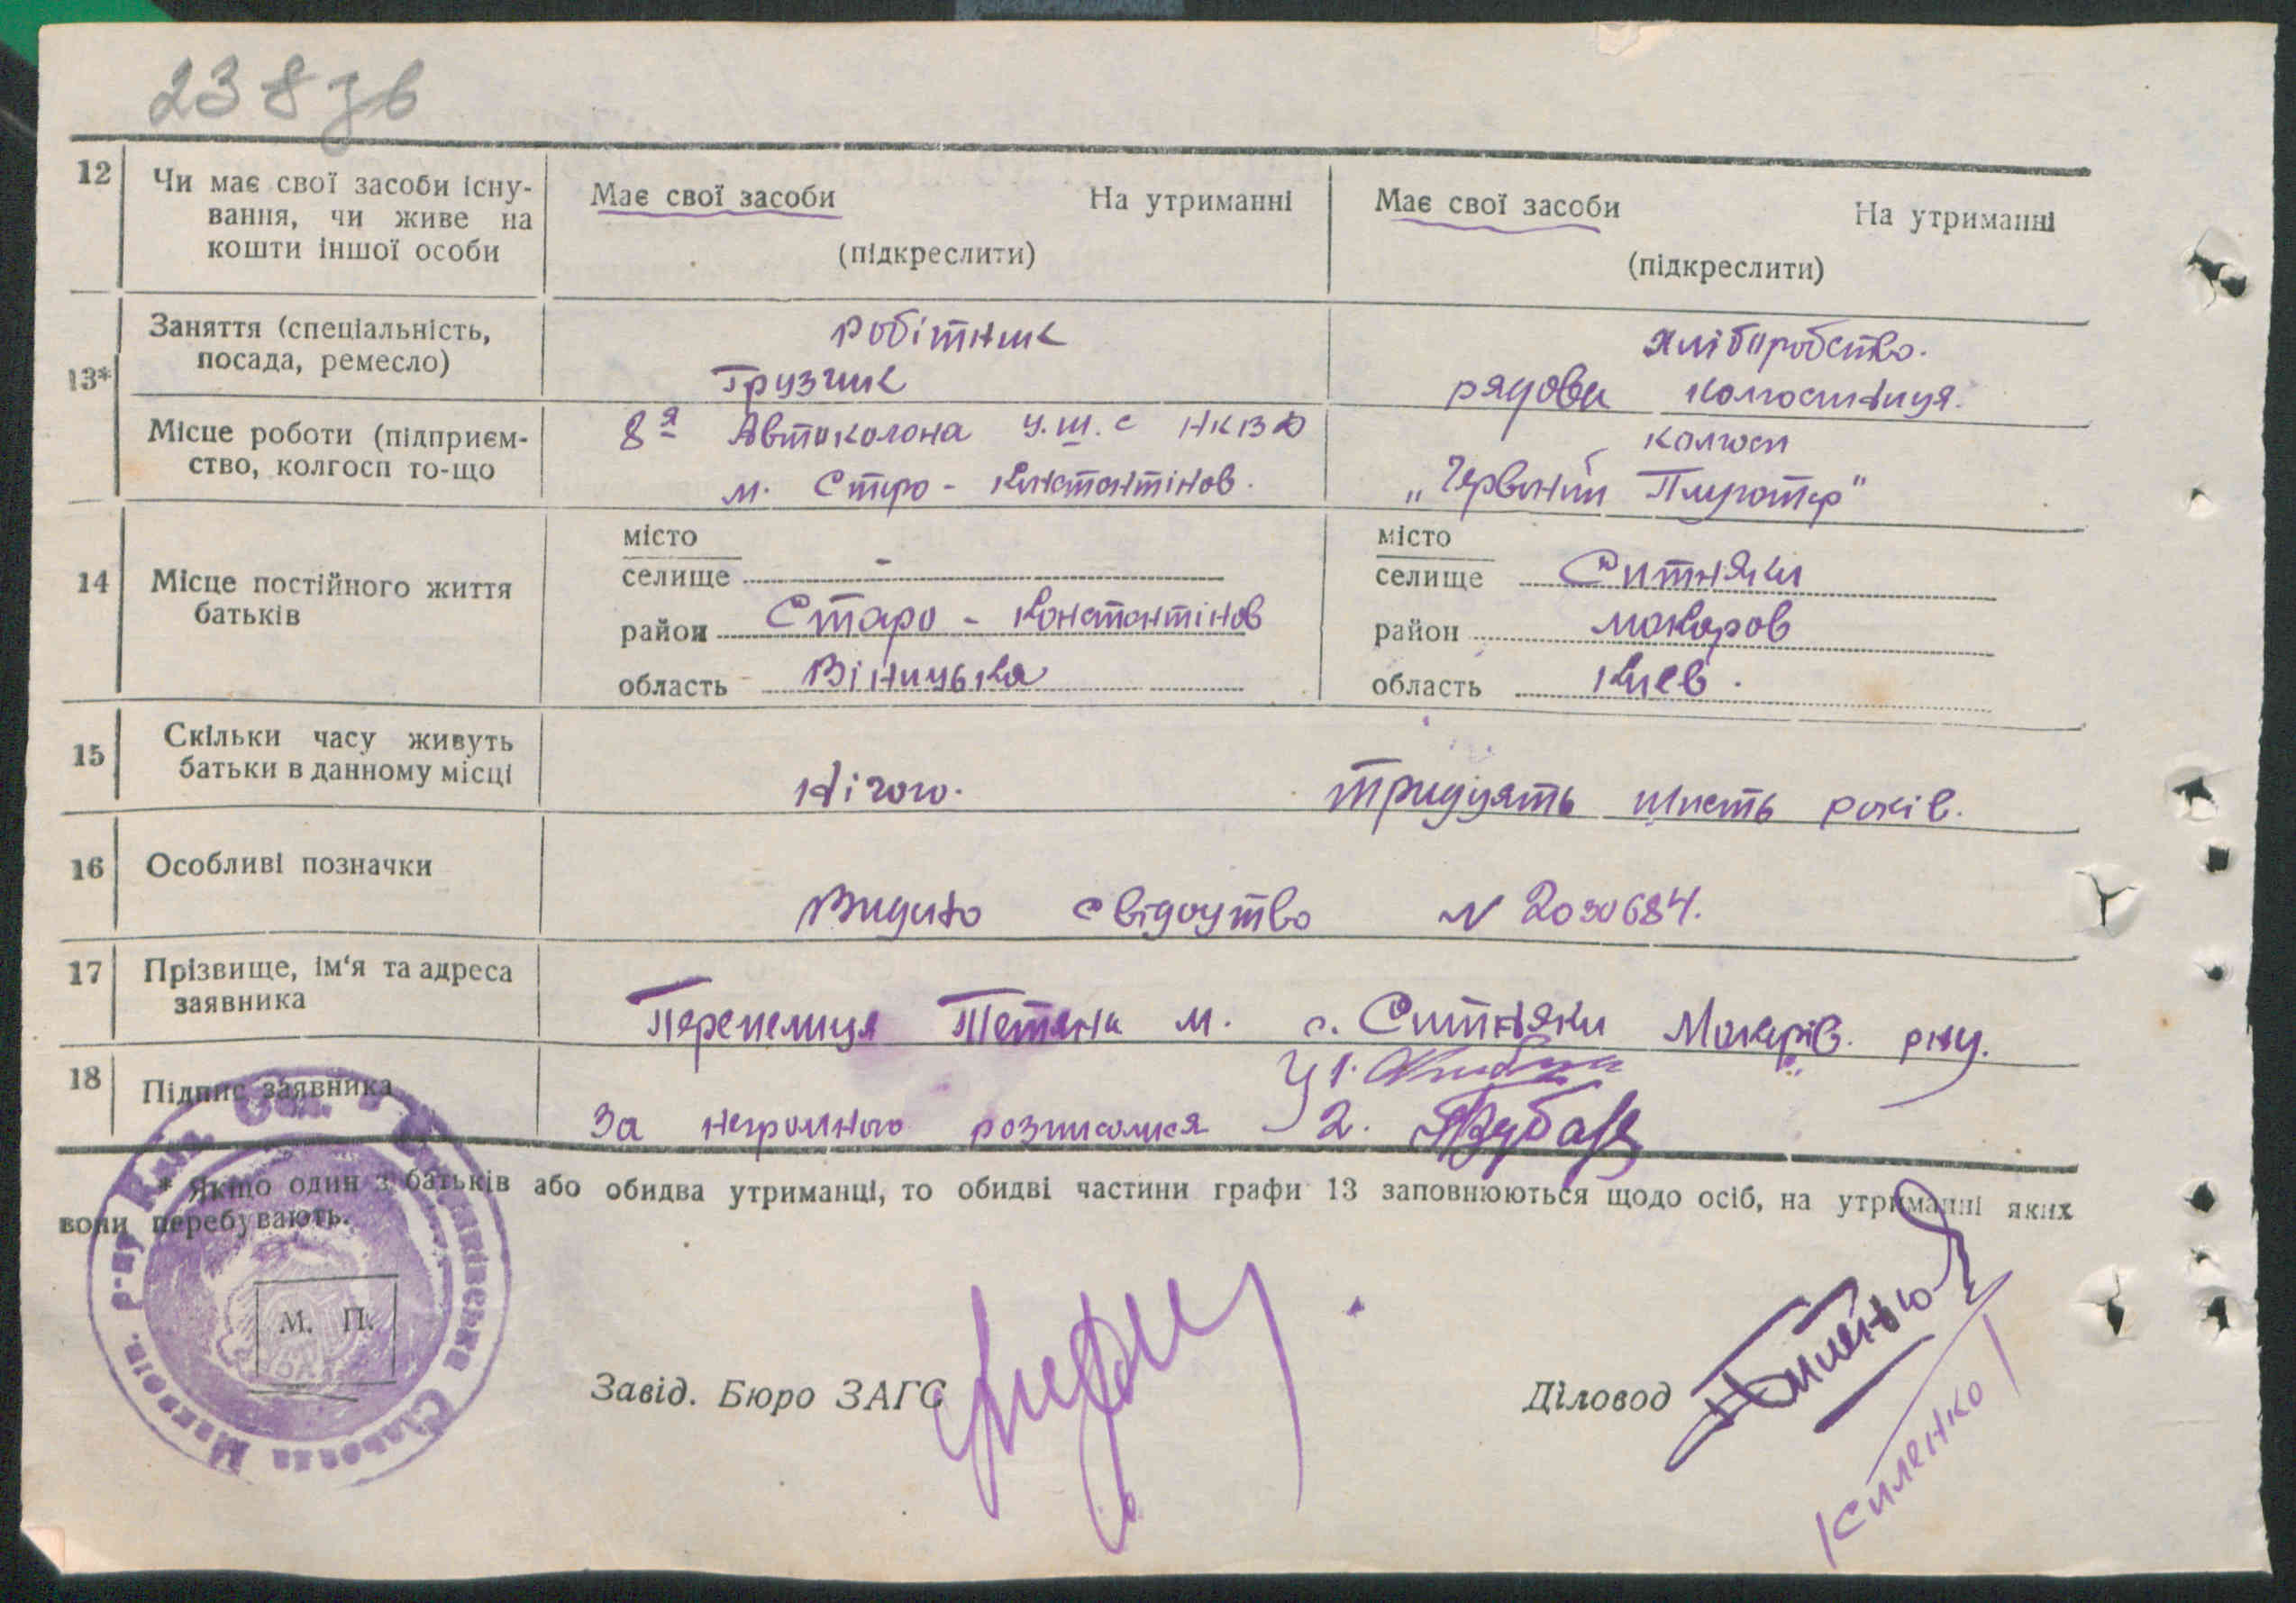 238 зв
12 Чи має свої засоби існу-
вання, чи живе на
кошти іншої особи
Має свої засоби На утриманні
(підкреслити)
Має свої засоби На утриманні
(підкреслити)
13*
Заняття (спеціальність,
посада, ремесло)
робітник
Грузчик
хліборобство.
рядова колгоспниця.
Місце роботи (підприєм-
ство, колгосп то-що
8я Автоколона у.ш.с НКВД
м. Стро-Константінов.
колгосп
„Червоний Плугатер"
14 Місце постійного життя
батьків
місто
селище -
район Старо-Константінов
область Вініцька
місто
селище Ситняки
район Макаров
область Киев.
15 Скільки часу живуть
батьки в данному місці
Нічого.
тридцять шисть років.
16 Особливі позначки
Видано свідоцтво N 2030684.
17 Прізвище, ім'я та адреса
заявника
Перепелиця Тетяна М. с. Ситняки Макарів. рну.
18 Підпис заявника
За неграмного розписалися 1.
2.
* Якщо один з батьків або обидва утриманці, то обидві частини графи 13 заповнюються щодо осіб, на утриманні яких
вони перебувають.
М. П.
Завід. Бюро ЗАГС
Діловод
Силенко